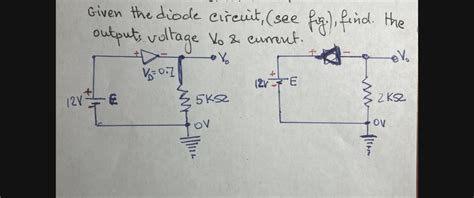 Given the diode circuit, (see fig.), find. the
output, voltage Vo & current.
+ - Vo
+ - Vo
VD=0.7
12V + E
5KΩ
12V + - E
2KΩ
0V
0V